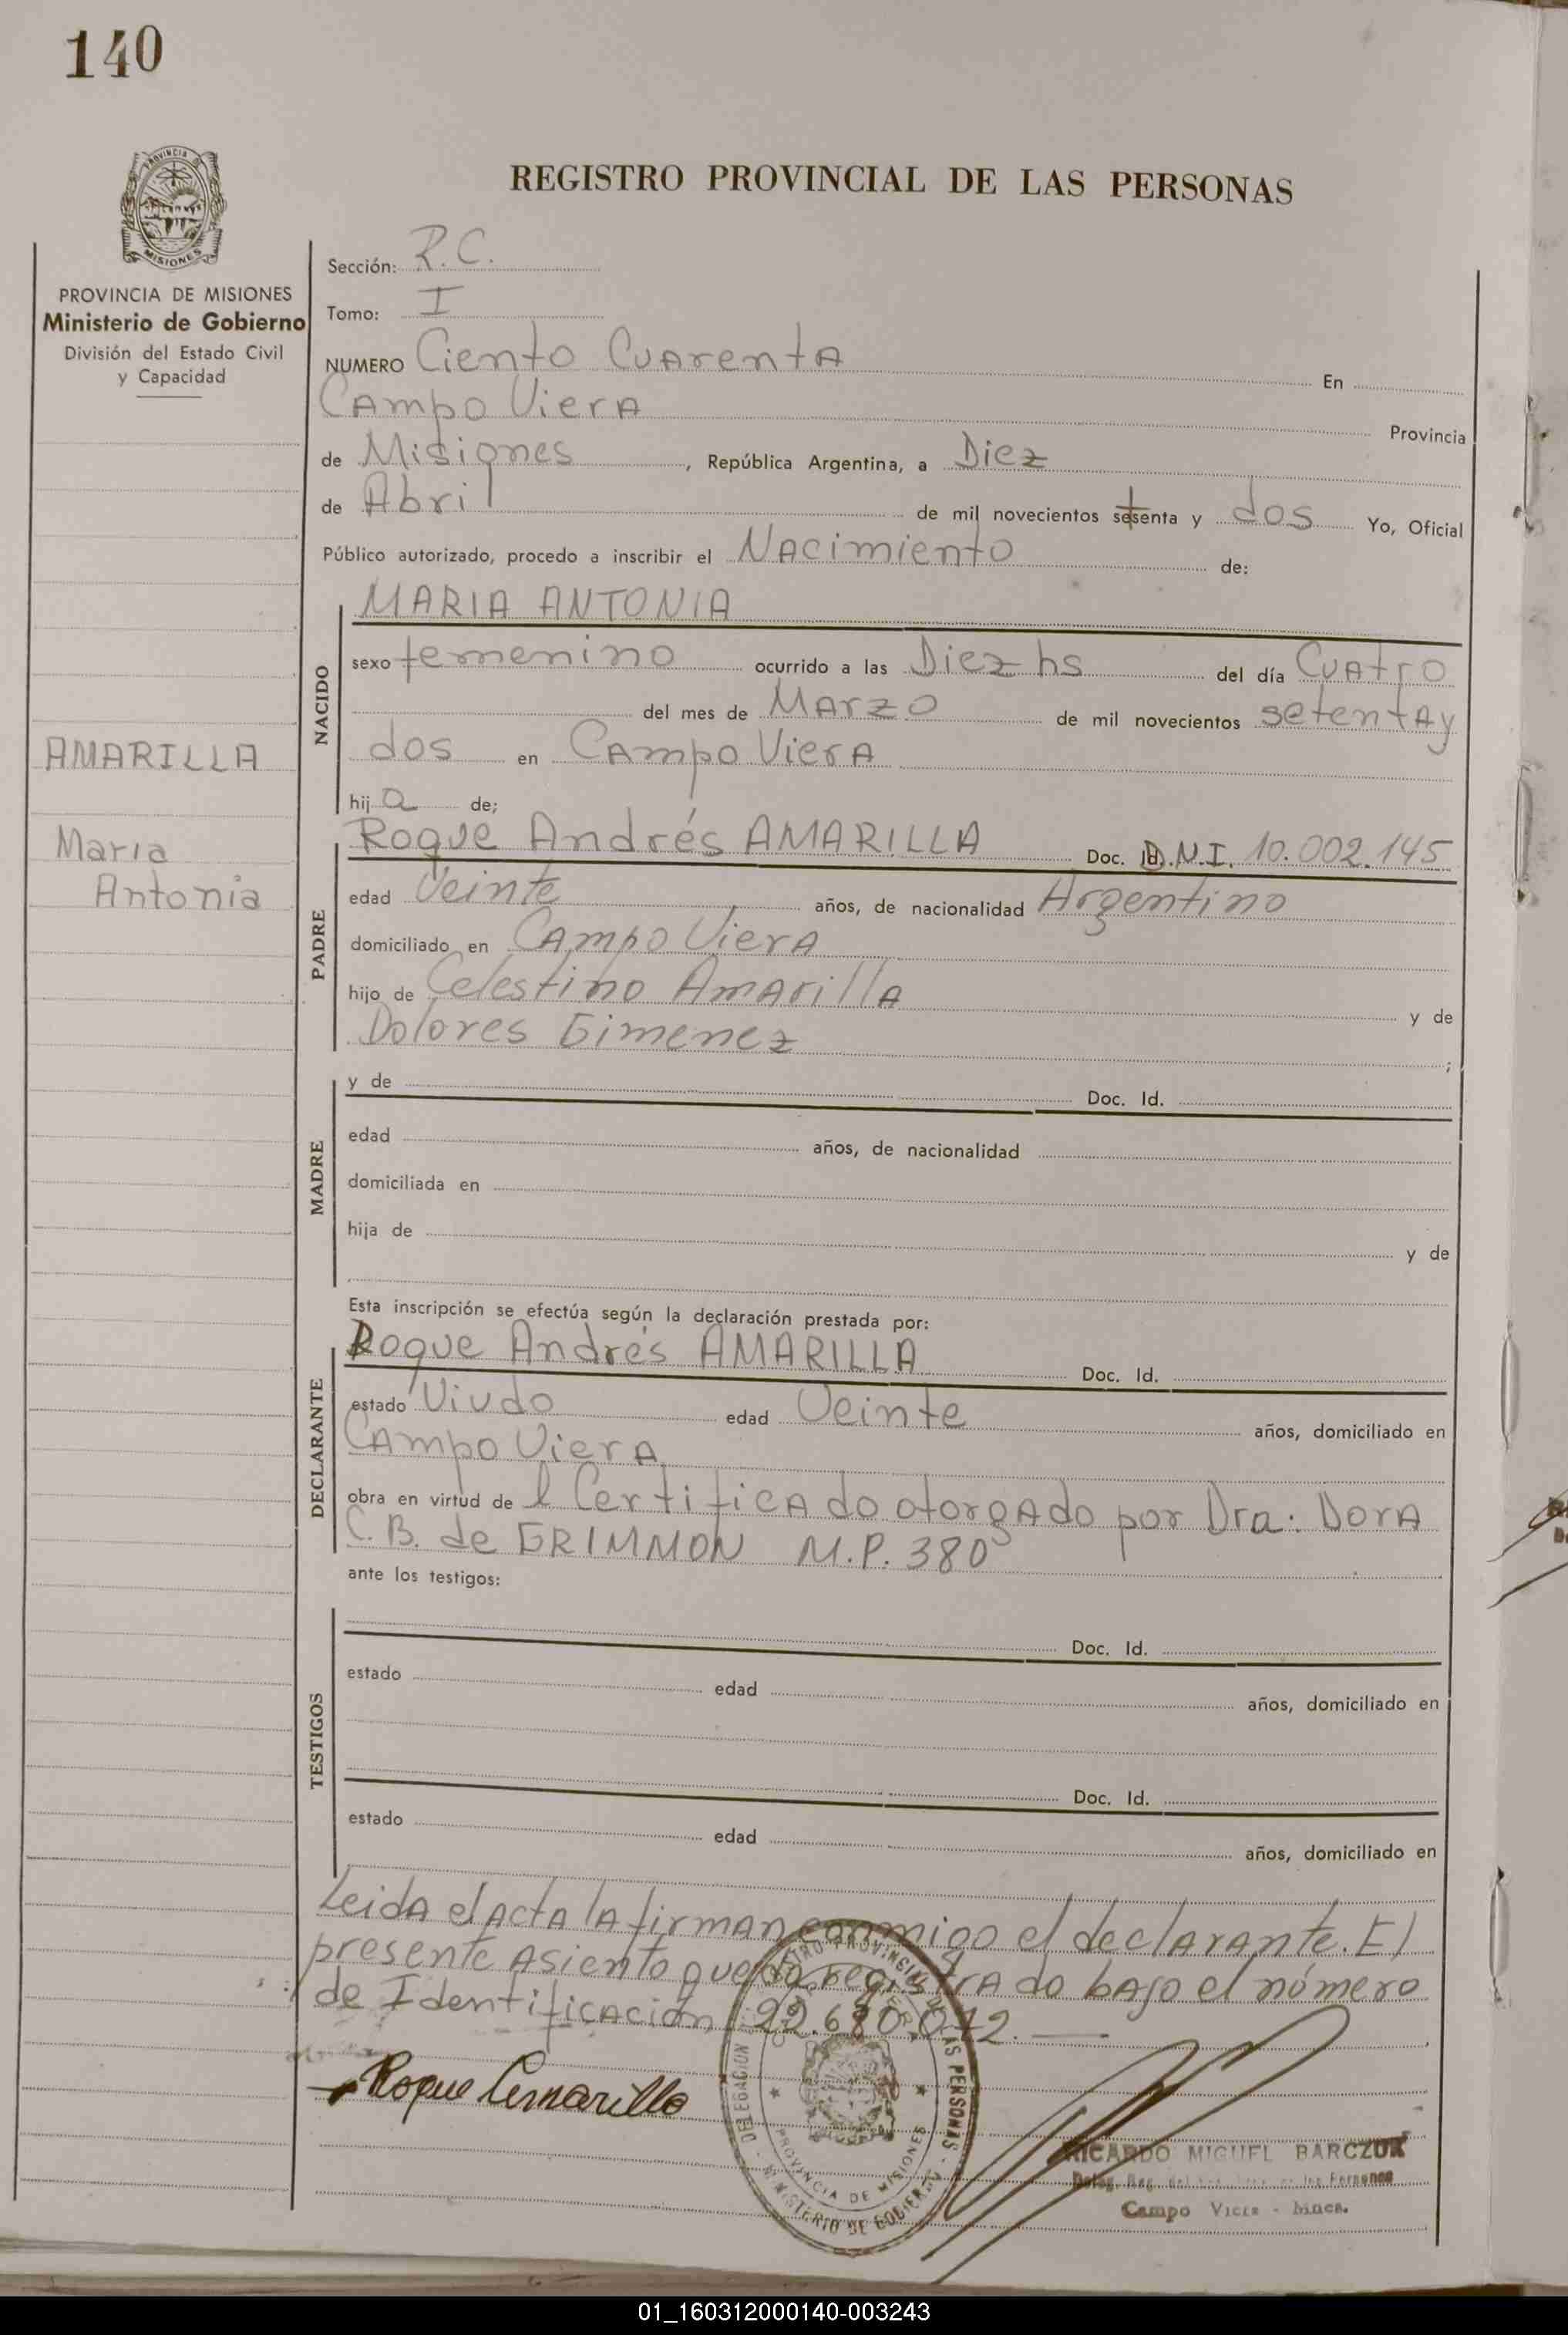 140
PROVINCIA DE
MISIONES
REGISTRO PROVINCIAL DE LAS PERSONAS
PROVINCIA DE MISIONES
Ministerio de Gobierno
División del Estado Civil
y Capacidad
AMARILLA
Maria
Antonia
Sección: R.C.
Tomo: I
NUMERO Ciento Cuarenta En
Campo Viera Provincia
de Misiones, República Argentina, a Diez
de Abril de mil novecientos setenta y dos Yo, Oficial
Público autorizado, procedo a inscribir el Nacimiento de:
NACIDO
MARIA ANTONIA
sexo femenino ocurrido a las Diez hs del día Cuatro
del mes de Marzo de mil novecientos setenta y
dos en Campo Viera
hija de;
PADRE
Roque Andrés AMARILLA Doc. D.N.I. 10.002.145
edad Veinte años, de nacionalidad Argentino
domiciliado en Campo Viera
hijo de Celestino Amarilla y de
Dolores Gimenez;
MADRE
y de Doc. Id.
edad años, de nacionalidad
domiciliada en
hija de y de
Esta inscripción se efectúa según la declaración prestada por:
DECLARANTE
Roque Andrés AMARILLA Doc. Id.
estado Viudo edad Veinte años, domiciliado en
Campo Viera
obra en virtud del Certificado otorgado por Dra: Dora
C.B. de GRIMMON M.P. 380
ante los testigos:
TESTIGOS
Doc. Id.
estado edad años, domiciliado en
Doc. Id.
estado edad años, domiciliado en
Leida el acta la firman conmigo el declarante. El
presente asiento queda registrado bajo el número
de Identificación 22.680.072.
Roque Amarilla
DELEGACION REGISTRO PROVINCIAL DE LAS PERSONAS
PROVINCIA DE MISIONES
MINISTERIO DE GOBIERNO
RICARDO MIGUEL BARCZUK
Deleg. Reg. de las Personas
Campo Viera - Mnes.
01_160312000140-003243